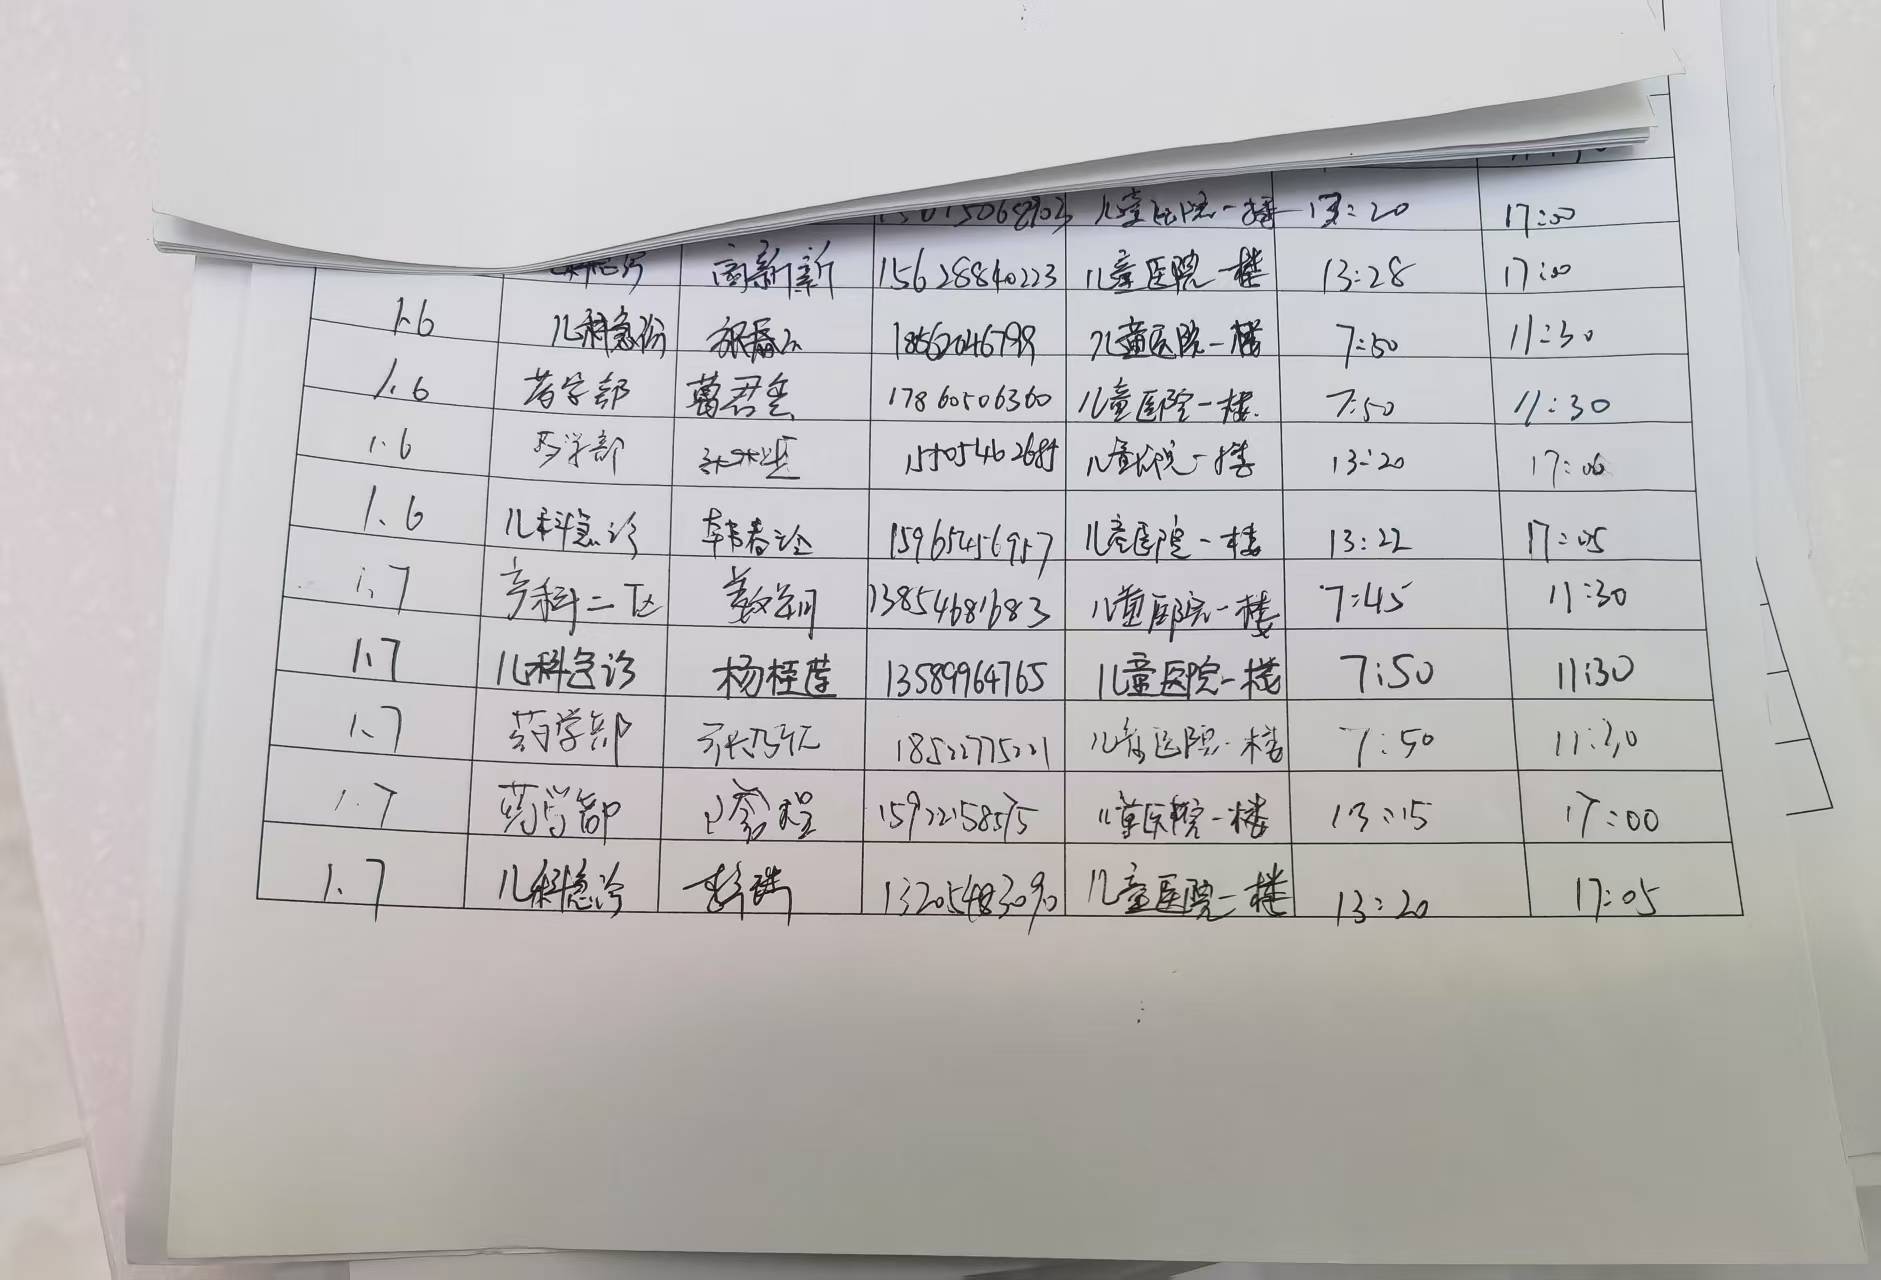 儿童医院一楼 13:20 17:00
15628840223 儿童医院一楼 13:28 17:00
1.6 儿科急诊 18562046799 儿童医院一楼 7:50 11:30
1.6 药学部 17860506360 儿童医院一楼 7:50 11:30
1.6 药学部 儿童医院一楼 13:20 17:00
1.6 儿科急诊 15965456957 儿童医院一楼 13:22 17:05
1.7 产科二区 13854681683 儿童医院一楼 7:45 11:30
1.7 儿科急诊 杨桂莲 13589964765 儿童医院一楼 7:50 11:30
1.7 药学部 18522775221 儿童医院一楼 7:50 11:30
1.7 药学部 儿童医院一楼 13:15 17:00
1.7 儿科急诊 儿童医院一楼 13:20 17:05